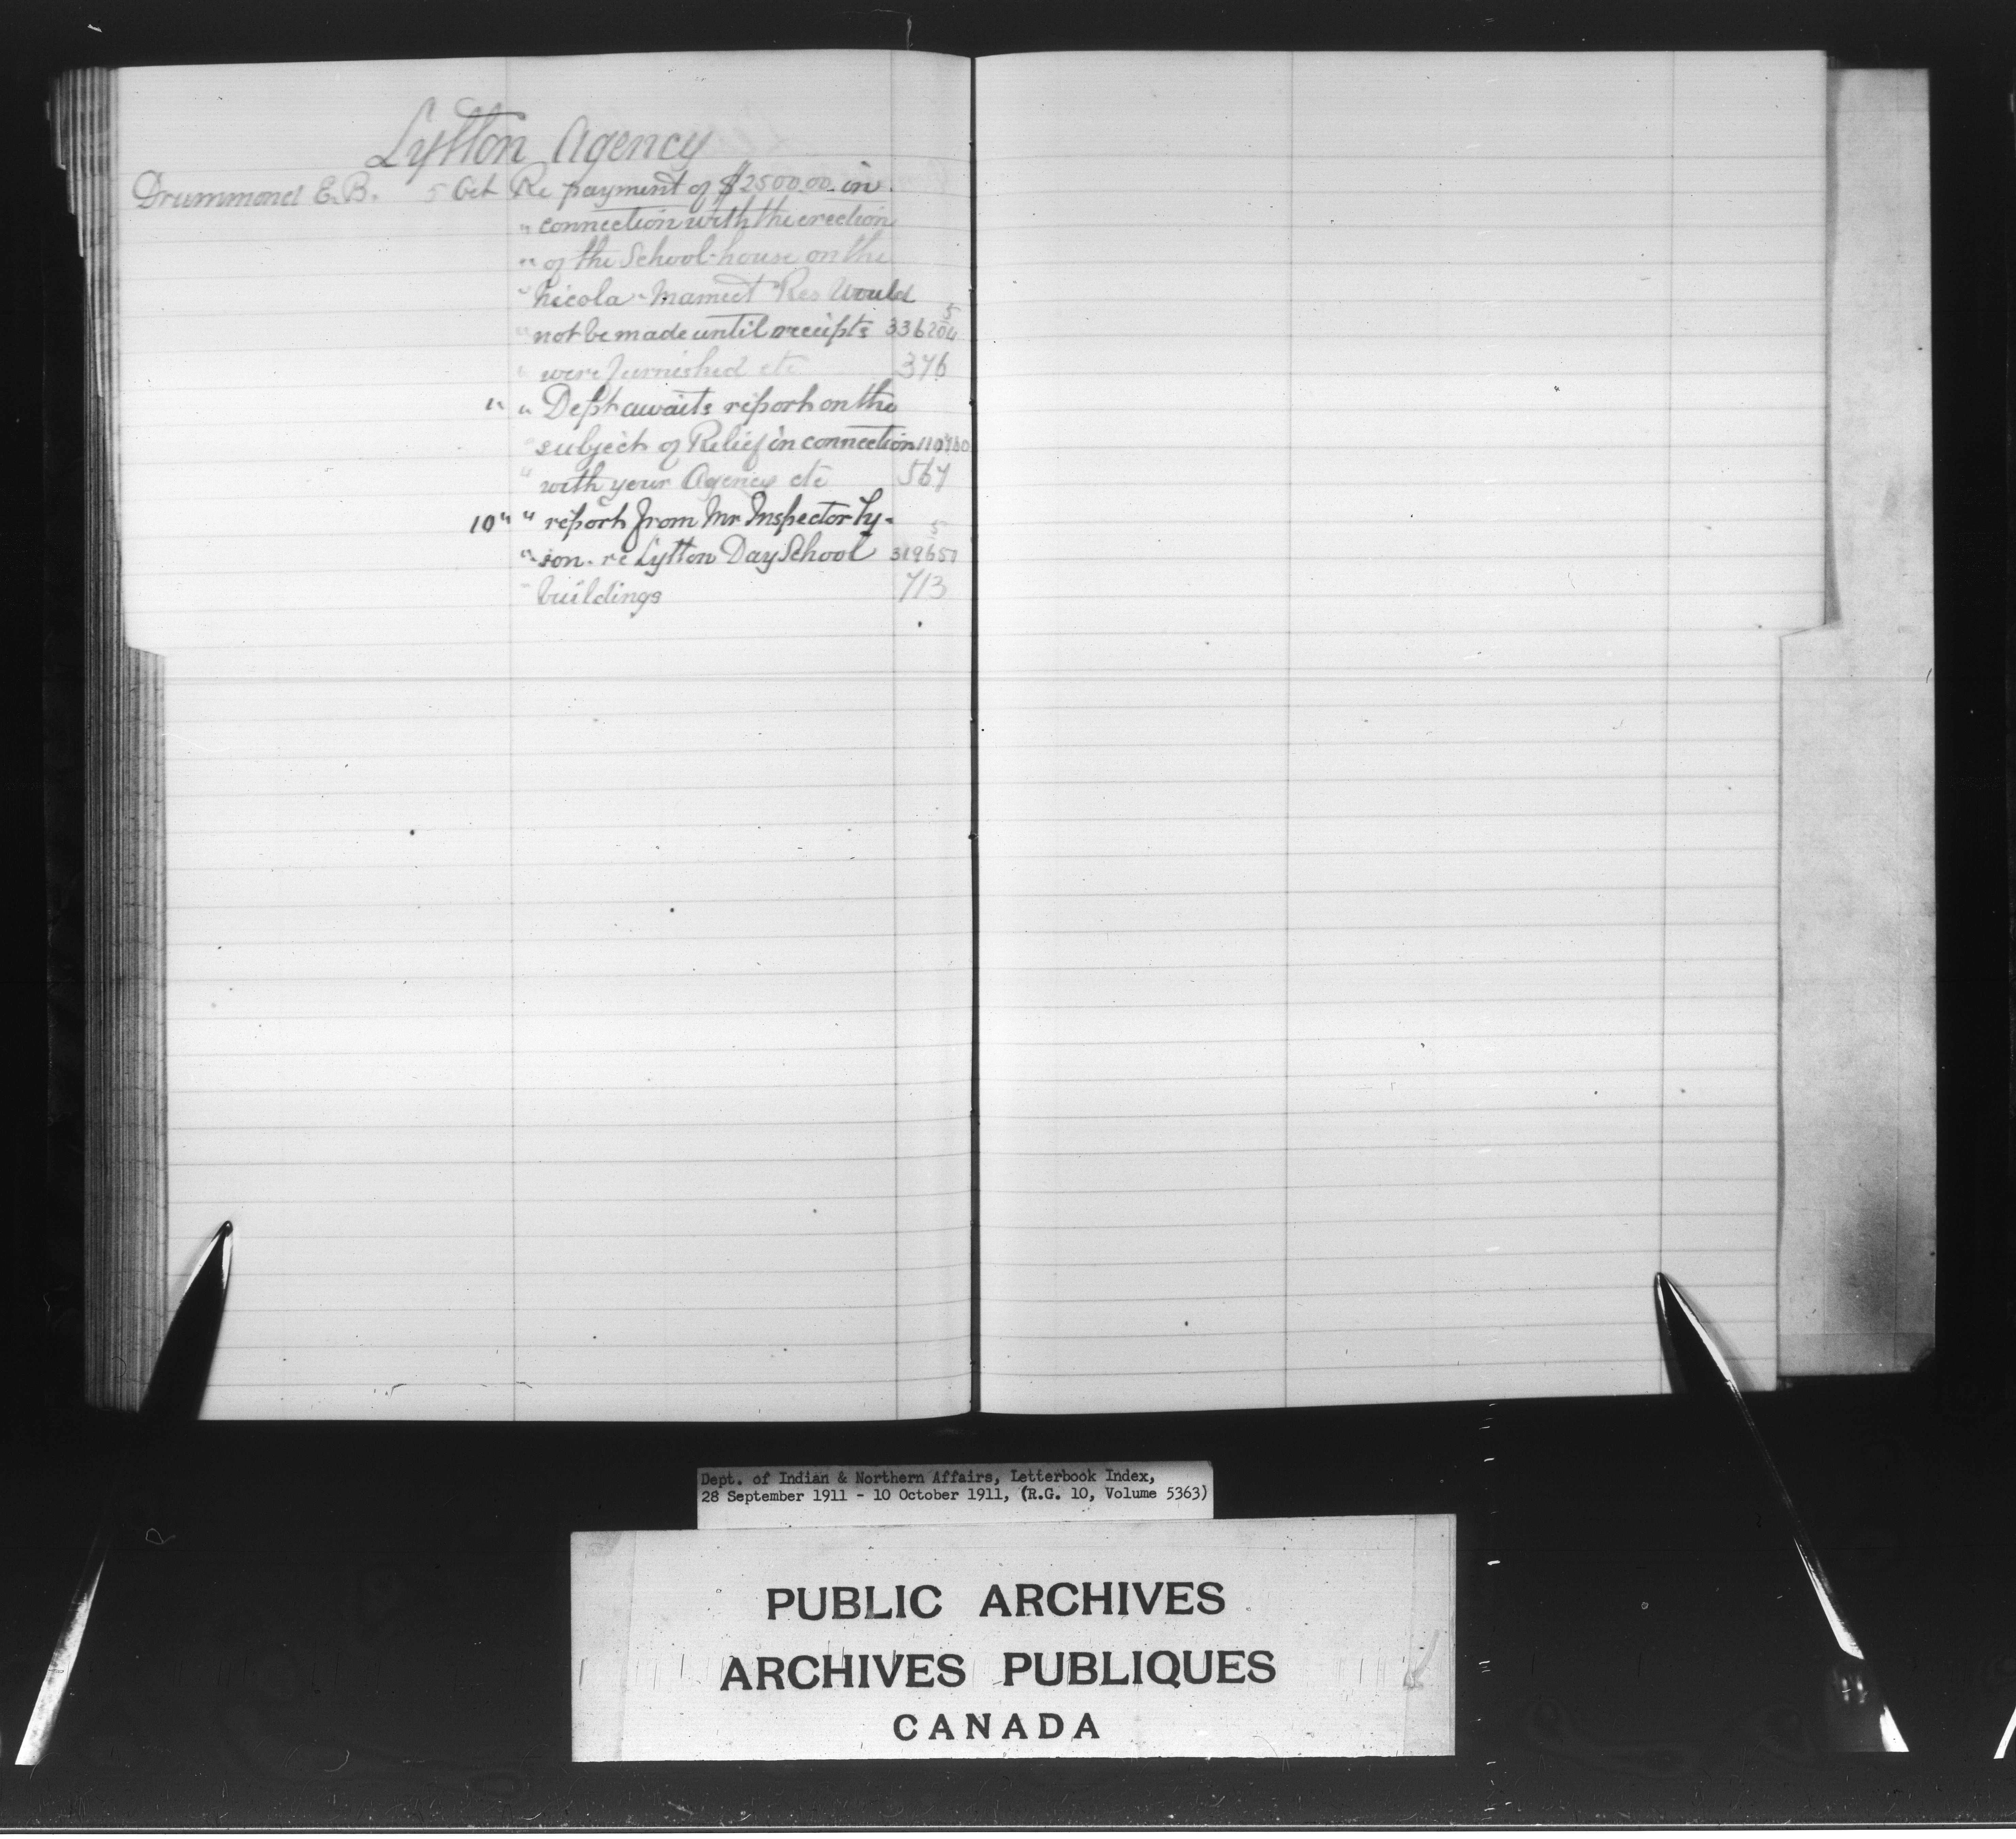 Lytton Agency
Drummond E.B. 5 Oct Re payment of $2500.00 in
" connection with the erection
" of the School-house on the
" Nicola - Mameet Res Would
" not be made until receipts 336204 5
" were furnished etc 376
" " Dept awaits report on the
" subject of Relief in connection 110700
" with your Agency etc 567
10 " " report from Mr Inspector Ty-
" son. re Lytton Day School 319650 5
" buildings 713
Dept. of Indian & Northern Affairs, Letterbook Index,
28 September 1911 - 10 October 1911, (R.G. 10, Volume 5363)
PUBLIC ARCHIVES
ARCHIVES PUBLIQUES
CANADA